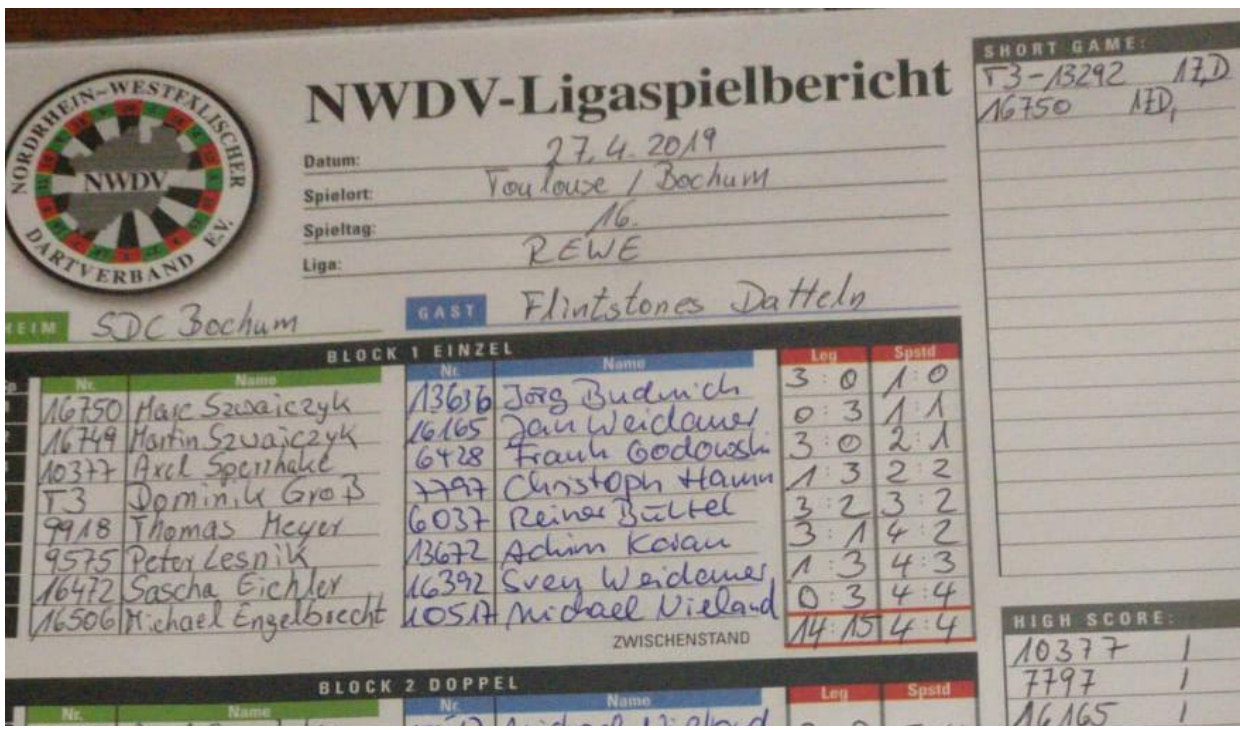 NORDRHEIN-WESTFÄLISCHER
NWDV
DARTVERBAND E.V.
NWDV-Ligaspielbericht
Datum: 27.4.2019
Spielort: Toulouse / Bochum
Spieltag: 16.
Liga: REWE
HEIM SDC Bochum GAST Flintstones Datteln
BLOCK 1 EINZEL
Nr. Name Nr. Name Leg Spstd
16750 Marc Szwajczyk 13636 Jörg Budnich 3:0 1:0
16749 Martin Szwajczyk 16165 Jan Weidauer 0:3 1:1
10377 Axel 6428 Frank Godowski 3:0 2:1
T3 Dominik Groß 7797 Christoph Hamm 1:3 2:2
9918 Thomas Meyer 6037 Reiner Bültel 3:2 3:2
9575 Peter Lesnik 13672 Achim 3:1 4:2
16472 Sascha Eichler 16392 Sven Weidauer 1:3 4:3
16506 Michael Engelbrecht 10517 Michael Nieland 0:3 4:4
ZWISCHENSTAND 14:15 4:4
BLOCK 2 DOPPEL
Nr. Name Nr. Name Leg Spstd
Michael Nieland
SHORT GAME:
T3-13292 17,D
16750 17D,
HIGH SCORE:
10377 1
7797 1
16165 1